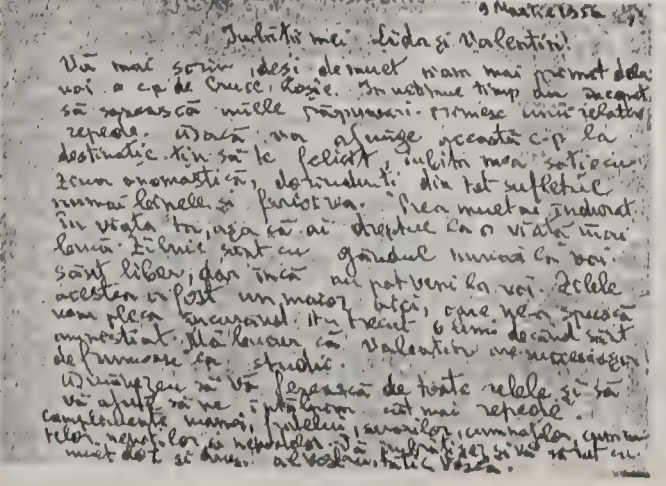 9 Martie 1956
Iubiții mei Lida și Valentin!
Vă mai scriu, deși de mult n-am mai primit dela
voi o c.p. de Cruce Roșie. In ultimul timp au început
să sosească unele răspunsuri. Primesc unii relativ
repede. Dacă va ajunge această c-p la
destinație țin să te felicit, iubita mea soție cu
ziua onomastică, dorindu-ți din tot sufletul
numai binele și fericirea. Prea mult ai îndurat
în viața ta, așa că ai dreptul la o viață mai
bună. Zilnic sunt cu gândul numai la voi.
Sânt liber, dar încă nu pot veni la voi. Zilele
acestea a fost un maior aici, care ne-a spus că
vom pleca încurând. Au trecut 6 luni de când sânt
amnestiat. Mă bucur că Valentin are succese
frumoase la studii.
Dumnezeu să vă ferească de toate relele și să
vă ajute să ne întâlnim cât mai repede.
Complimente mamei, fratelui, surorilor, cumnaților,
nepoților și nepoatelor. Vă îmbrățișez și vă sărut cu
mult dor și drag. al vostru tătic